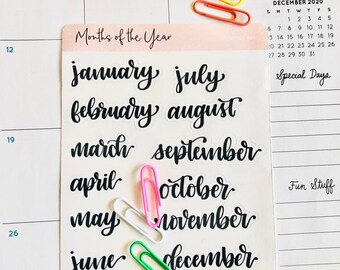 Months of the Year
january july
february august
march september
april october
may november
june december
12
19
26
DECEMBER 2020
S M T W T F S
1 2 3 4 5
6 7 8 9 10 11 12
13 14 15 16 17 18 19
20 21 22 23 24 25 26
27 28 29 30 31
Special Days
Fun Stuff